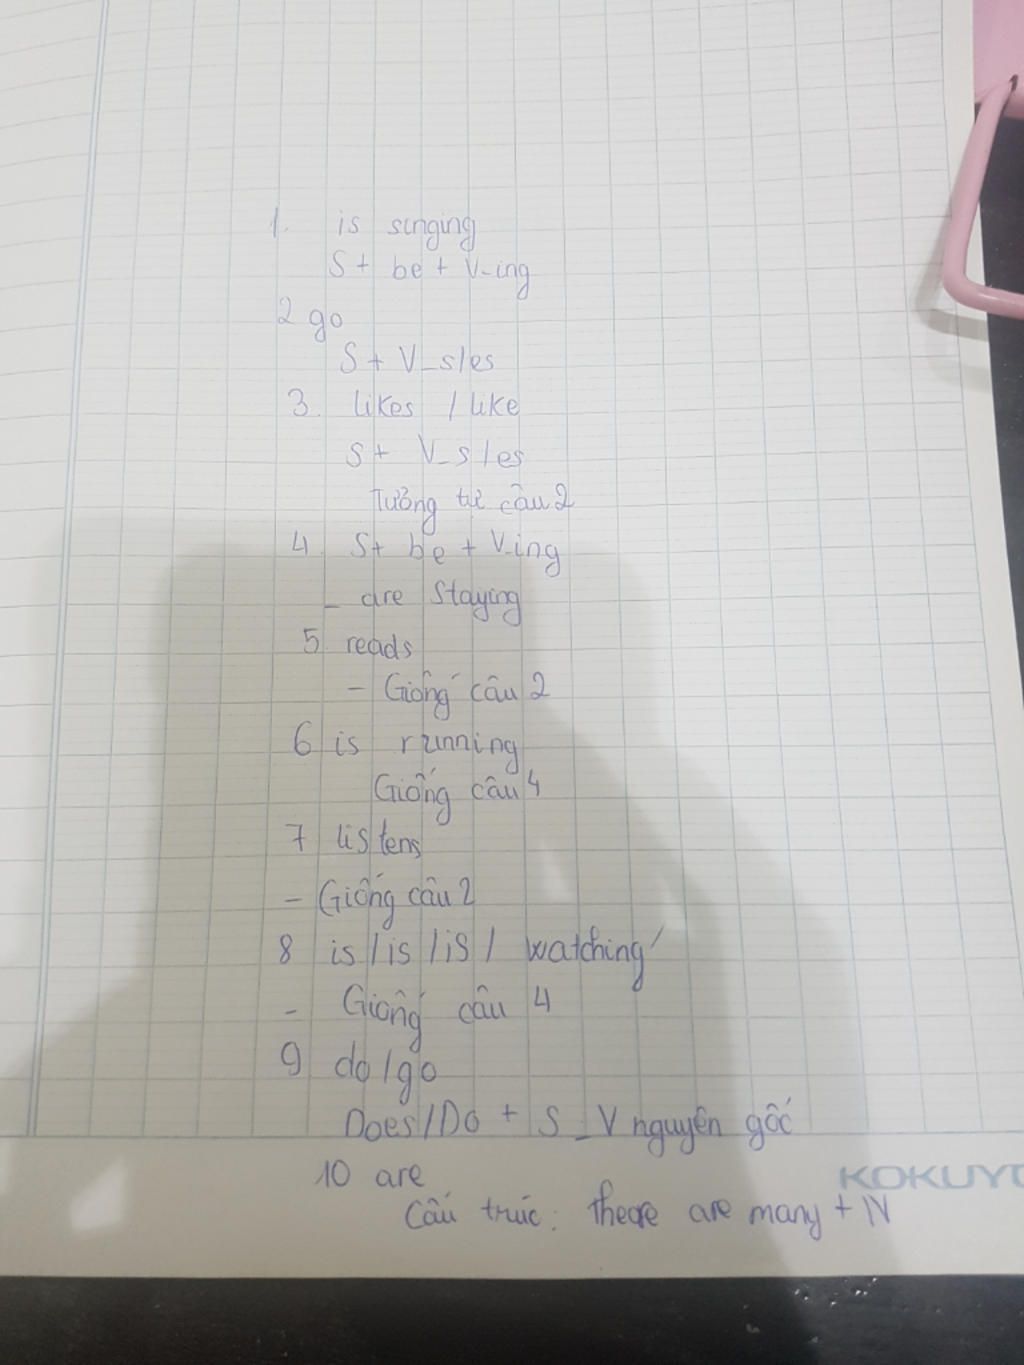 1. is singing
S + be + V-ing
2 go
S + V_s/es
3. likes / like
S + V_s/es
Tương tự câu 2
4 S+ be + V-ing
_ are staying
5. reads
- Giống câu 2
6 is running
Giống câu 4
7 listens
- Giống câu 2
8 is / is / is / watching
- Giống câu 4
9 do / go
Does/Do + S _ V nguyên gốc
10 are
KOKUYO
Cấu trúc: theore are many + N